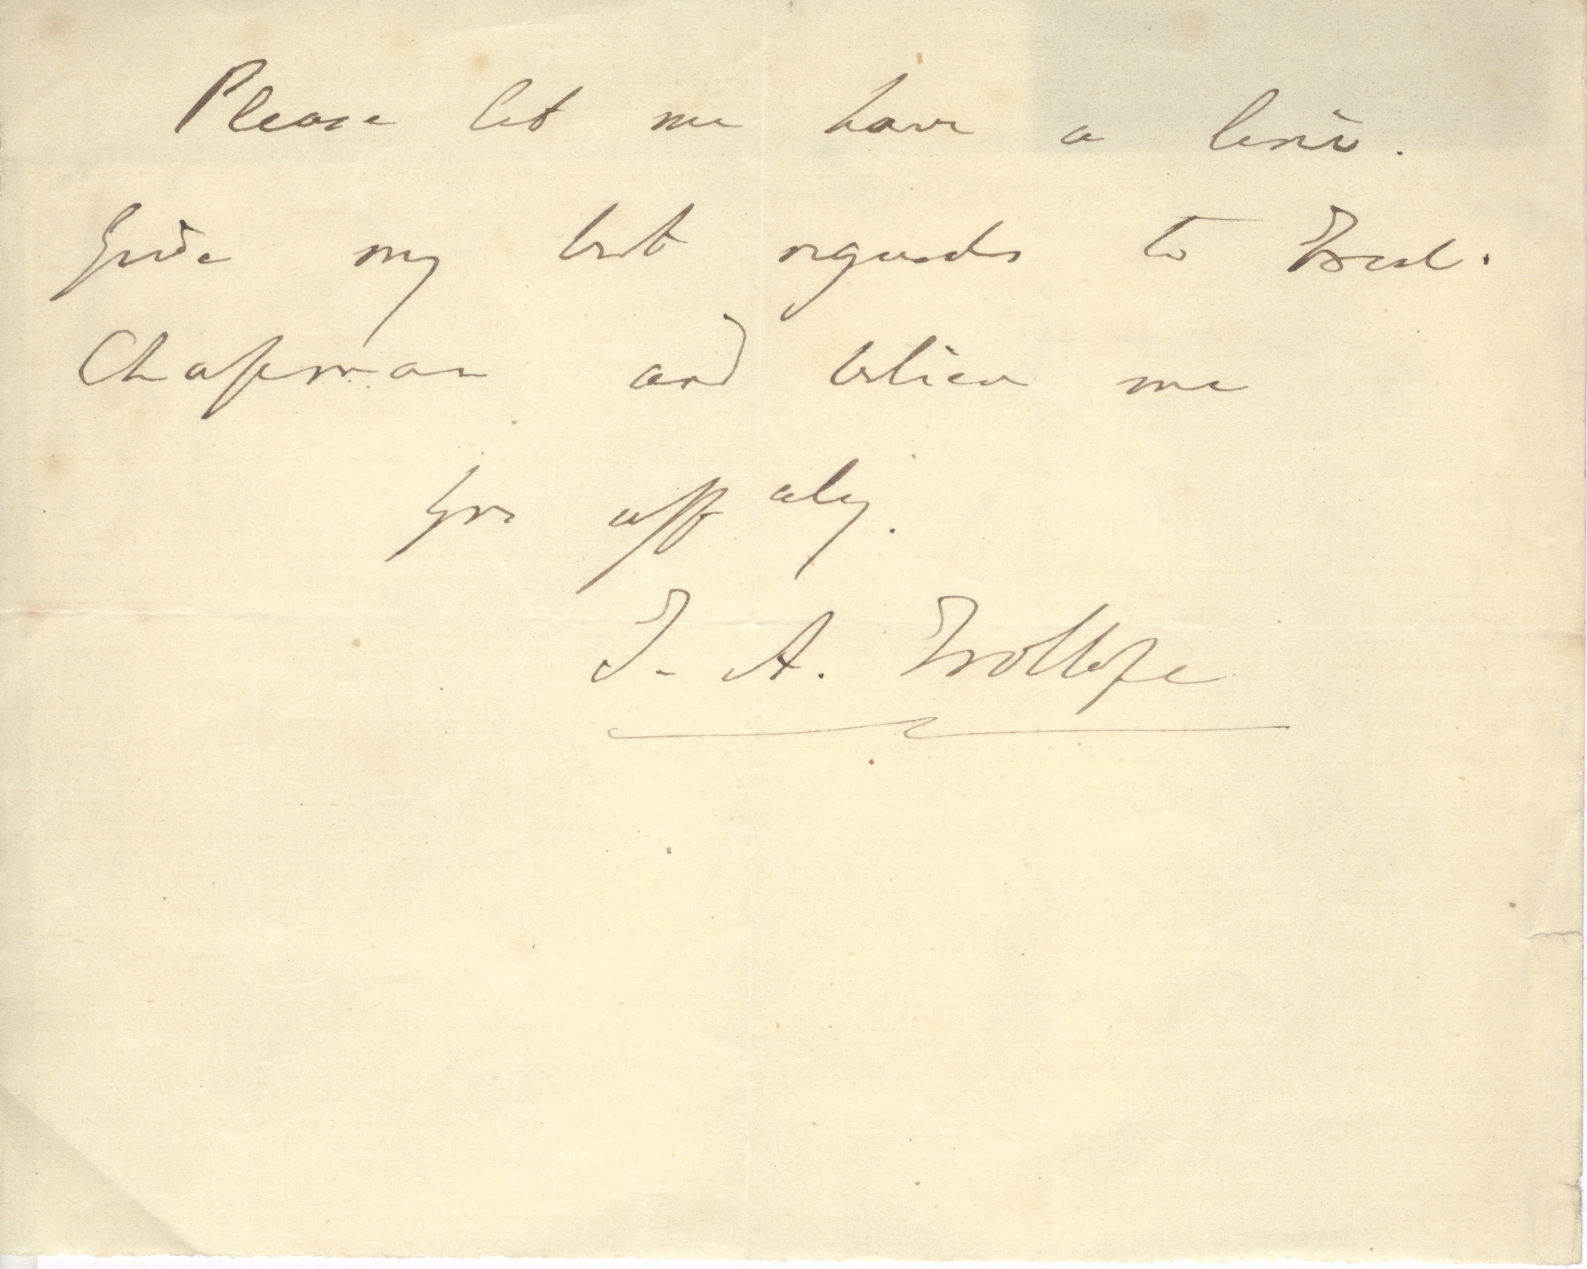 Please let me have a line.
Give my best regards to Fred.
Chapman and believe me
Yrs affately.
T. A. Trollope